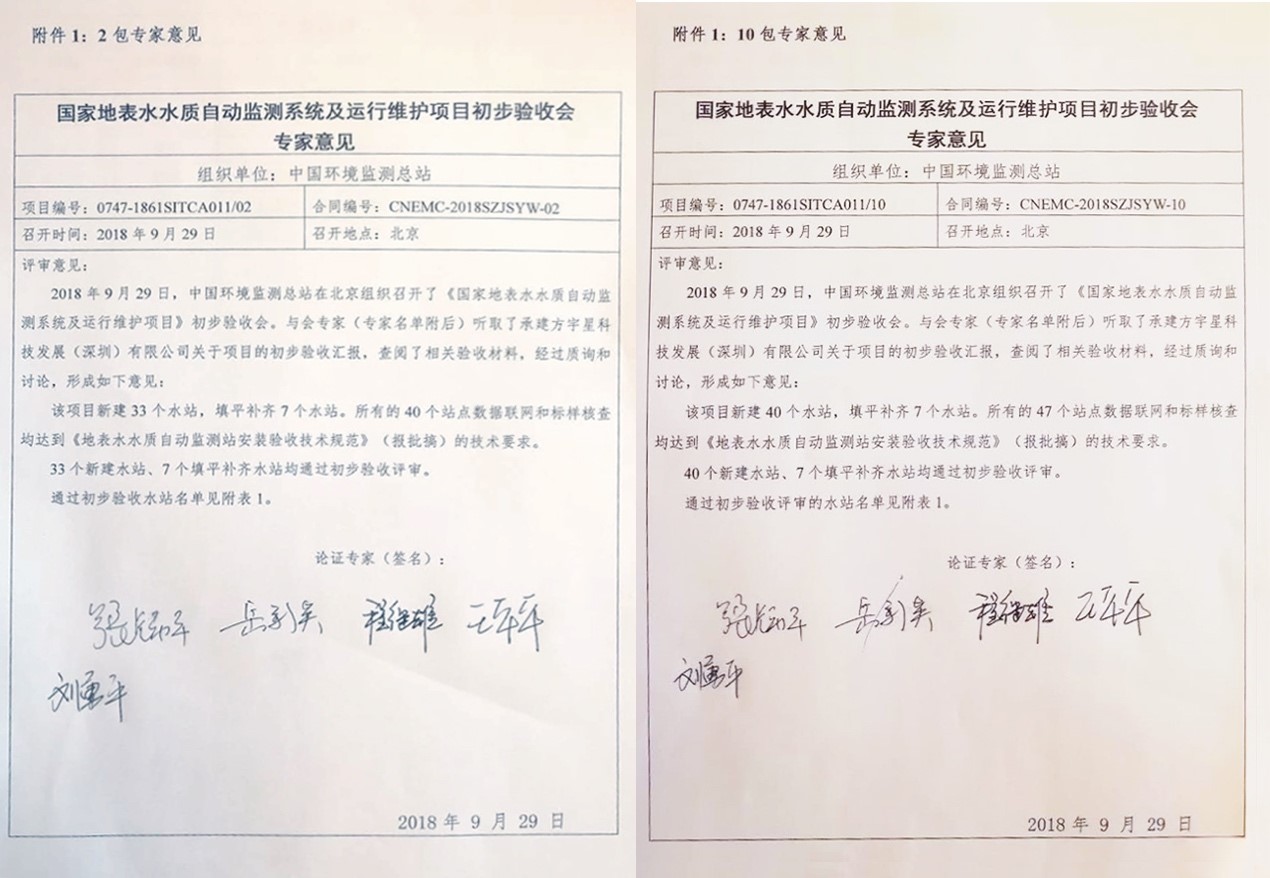 附件 1：2 包专家意见
国家地表水水质自动监测系统及运行维护项目初步验收会
专家意见
组织单位：中国环境监测总站
项目编号：0747-1861SITCA011/02
合同编号：CNEMC-2018SZJSYW-02
召开时间：2018 年 9 月 29 日
召开地点：北京
评审意见：
2018 年 9 月 29 日，中国环境监测总站在北京组织召开了《国家地表水水质自动监
测系统及运行维护项目》初步验收会。与会专家（专家名单附后）听取了承建方宇星科
技发展（深圳）有限公司关于项目的初步验收汇报，查阅了相关验收材料，经过质询和
讨论，形成如下意见：
该项目新建 33 个水站，填平补齐 7 个水站。所有的 40 个站点数据联网和标样核查
均达到《地表水水质自动监测站安装验收技术规范》（报批搞）的技术要求。
33 个新建水站、7 个填平补齐水站均通过初步验收评审。
通过初步验收水站名单见附表 1。
论证专家（签名）：
刘勇平
2018 年 9 月 29 日
附件 1：10 包专家意见
国家地表水水质自动监测系统及运行维护项目初步验收会
专家意见
组织单位：中国环境监测总站
项目编号：0747-1861SITCA011/10
合同编号：CNEMC-2018SZJSYW-10
召开时间：2018 年 9 月 29 日
召开地点：北京
评审意见：
2018 年 9 月 29 日，中国环境监测总站在北京组织召开了《国家地表水水质自动监
测系统及运行维护项目》初步验收会。与会专家（专家名单附后）听取了承建方宇星科
技发展（深圳）有限公司关于项目的初步验收汇报，查阅了相关验收材料，经过质询和
讨论，形成如下意见：
该项目新建 40 个水站，填平补齐 7 个水站。所有的 47 个站点数据联网和标样核查
均达到《地表水水质自动监测站安装验收技术规范》（报批搞）的技术要求。
40 个新建水站、7 个填平补齐水站均通过初步验收评审。
通过初步验收评审的水站名单见附表 1。
论证专家（签名）：
刘勇平
2018 年 9 月 29 日